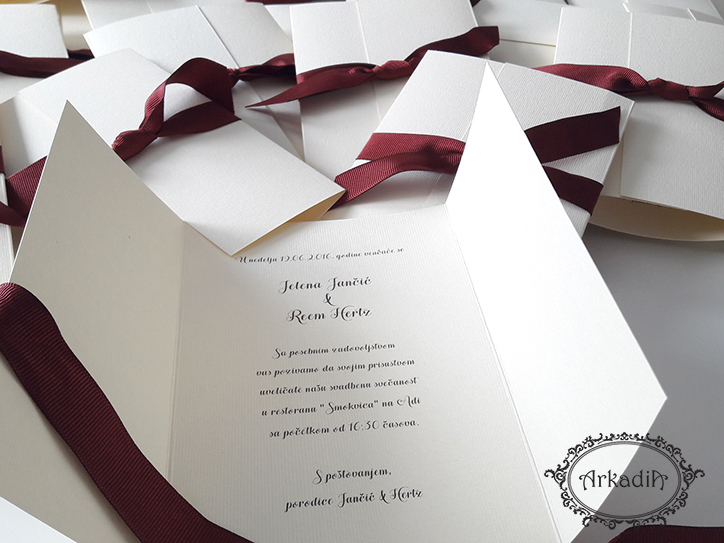 U nedelju 19.06.2016. godine venčaće se
Jelena Jančić
&
Reem Hertz
Sa posebnim zadovoljstvom
vas pozivamo da svojim prisustvom
uveličate našu svadbenu svečanost
u restoranu "Smokvica" na Adi
sa početkom od 16:30 časova.
S poštovanjem,
porodice Jančić & Hertz
Arkadia